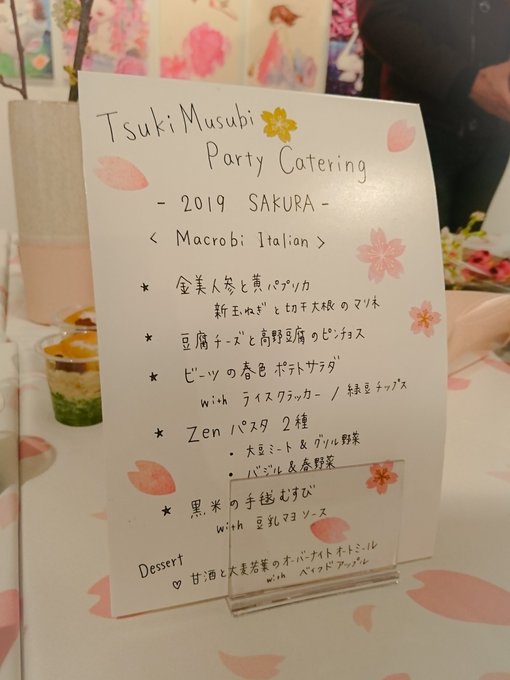 Tsuki Musubi
Party Catering
- 2019 SAKURA -
< Macrobi Italian >
★ 金美人参と黄パプリカ
新玉ねぎと切干大根のマリネ
★ 豆腐チーズと高野豆腐のピンチョス
★ ビーツの春色ポテトサラダ
with ライスクラッカー / 緑豆チップス
★ Zen パスタ 2種
・大豆ミート & グリル野菜
・バジル & 春野菜
★ 黒米の手毬むすび
with 豆乳マヨソース
Dessert
♡ 甘酒と大麦若葉のオーバーナイトオートミール
with ベイクドアップル